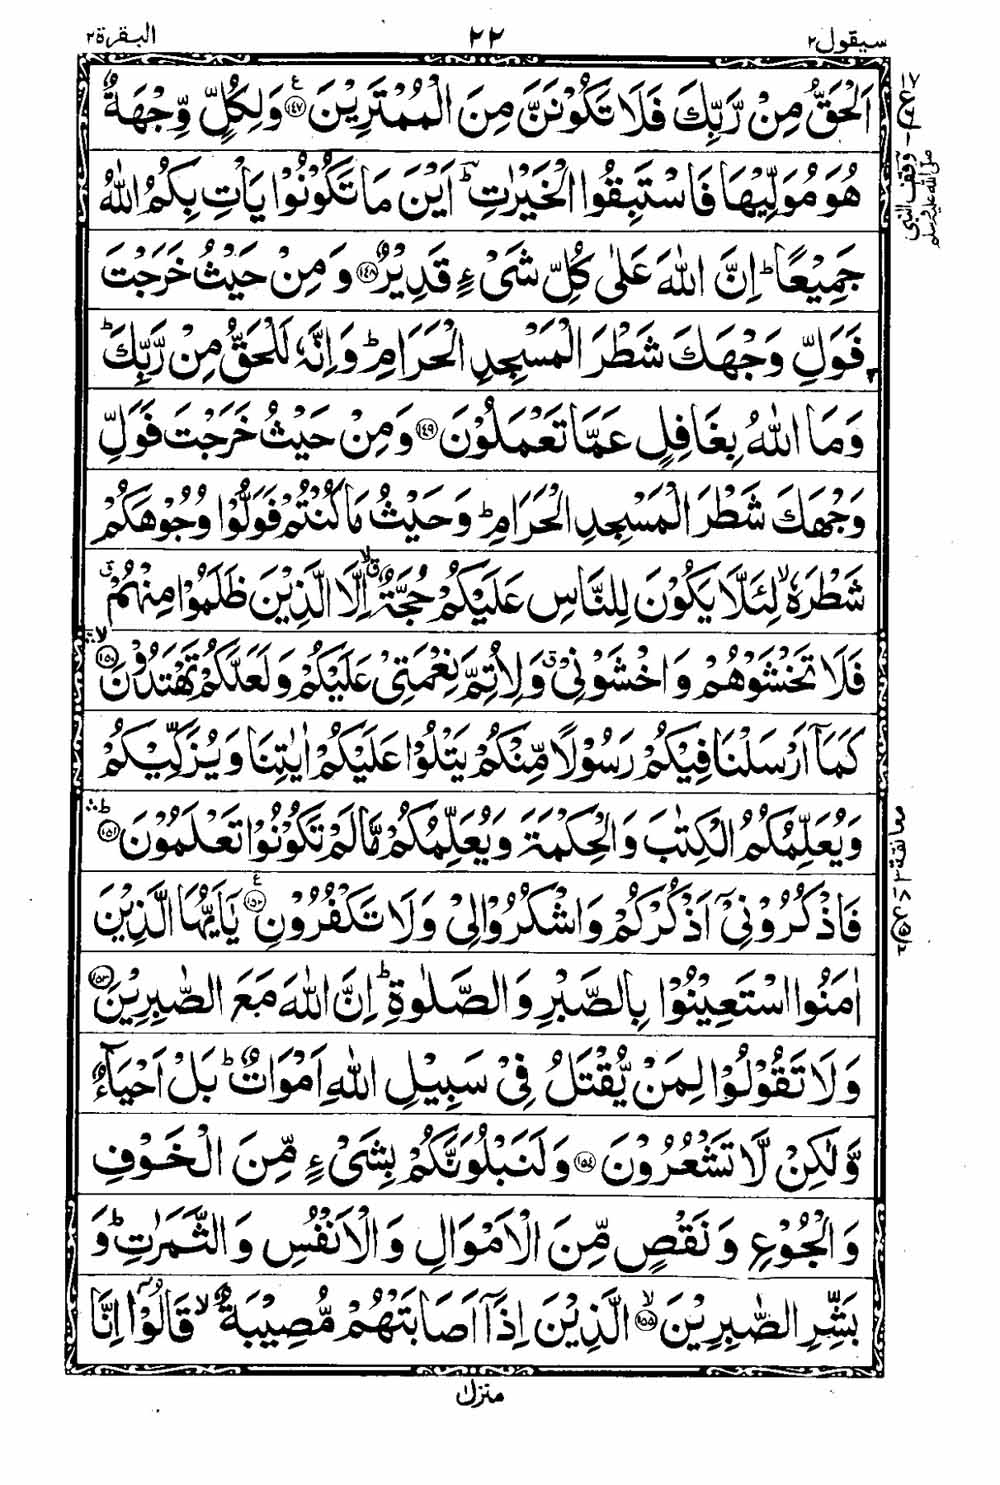 سيقول٢ ٢٢ البقرة٢
اَلْحَقُّ مِنْ رَّبِّكَ فَلَا تَكُوْنَنَّ مِنَ الْمُمْتَرِيْنَ ﴿١٤٧﴾ ع وَلِكُلٍّ وِّجْهَةٌ
هُوَ مُوَلِّيْهَا فَاسْتَبِقُوا الْخَيْرٰتِ ؕ اَيْنَ مَا تَكُوْنُوْا يَاْتِ بِكُمُ اللّٰهُ
جَمِيْعًا ؕ اِنَّ اللّٰهَ عَلٰى كُلِّ شَىْءٍ قَدِيْرٌ ﴿١٤٨﴾ وَ مِنْ حَيْثُ خَرَجْتَ
فَوَلِّ وَجْهَكَ شَطْرَ الْمَسْجِدِ الْحَرَامِ ؕ وَاِنَّهٗ لَلْحَقُّ مِنْ رَّبِّكَ ؕ
وَمَا اللّٰهُ بِغَافِلٍ عَمَّا تَعْمَلُوْنَ ﴿١٤٩﴾ وَمِنْ حَيْثُ خَرَجْتَ فَوَلِّ
وَجْهَكَ شَطْرَ الْمَسْجِدِ الْحَرَامِ ؕ وَحَيْثُ مَا كُنْتُمْ فَوَلُّوْا وُجُوْهَكُمْ
شَطْرَهٗ ۙ لِئَلَّا يَكُوْنَ لِلنَّاسِ عَلَيْكُمْ حُجَّةٌ ۙ ق اِلَّا الَّذِيْنَ ظَلَمُوْا مِنْهُمْ ق
فَلَا تَخْشَوْهُمْ وَاخْشَوْنِىْ ق وَلِاُتِمَّ نِعْمَتِىْ عَلَيْكُمْ وَلَعَلَّكُمْ تَهْتَدُوْنَ ﴿١٥٠﴾ ۛۙ
كَمَآ اَرْسَلْنَا فِيْكُمْ رَسُوْلًا مِّنْكُمْ يَتْلُوْا عَلَيْكُمْ اٰيٰتِنَا وَيُزَكِّيْكُمْ
وَيُعَلِّمُكُمُ الْكِتٰبَ وَالْحِكْمَةَ وَيُعَلِّمُكُمْ مَّا لَمْ تَكُوْنُوْا تَعْلَمُوْنَ ﴿١٥١﴾ ؕۛ
فَاذْكُرُوْنِىْٓ اَذْكُرْكُمْ وَاشْكُرُوْا لِىْ وَلَا تَكْفُرُوْنِ ﴿١٥٢﴾ ع يٰٓاَيُّهَا الَّذِيْنَ
اٰمَنُوا اسْتَعِيْنُوْا بِالصَّبْرِ وَالصَّلٰوةِ ؕ اِنَّ اللّٰهَ مَعَ الصّٰبِرِيْنَ ﴿١٥٣﴾
وَلَا تَقُوْلُوْا لِمَنْ يُّقْتَلُ فِىْ سَبِيْلِ اللّٰهِ اَمْوَاتٌ ؕ بَلْ اَحْيَآءٌ
وَّلٰكِنْ لَّا تَشْعُرُوْنَ ﴿١٥٤﴾ وَلَنَبْلُوَنَّكُمْ بِشَىْءٍ مِّنَ الْخَوْفِ
وَالْجُوْعِ وَنَقْصٍ مِّنَ الْاَمْوَالِ وَالْاَنْفُسِ وَالثَّمَرٰتِ ؕ وَ
بَشِّرِ الصّٰبِرِيْنَ ﴿١٥٥﴾ ۙ الَّذِيْنَ اِذَآ اَصَابَتْهُمْ مُّصِيْبَةٌ ۙ قَالُوْٓا اِنَّا
١٧ ع
وقف النبي صلى الله عليه وسلم
معانقة ٢
منزل١